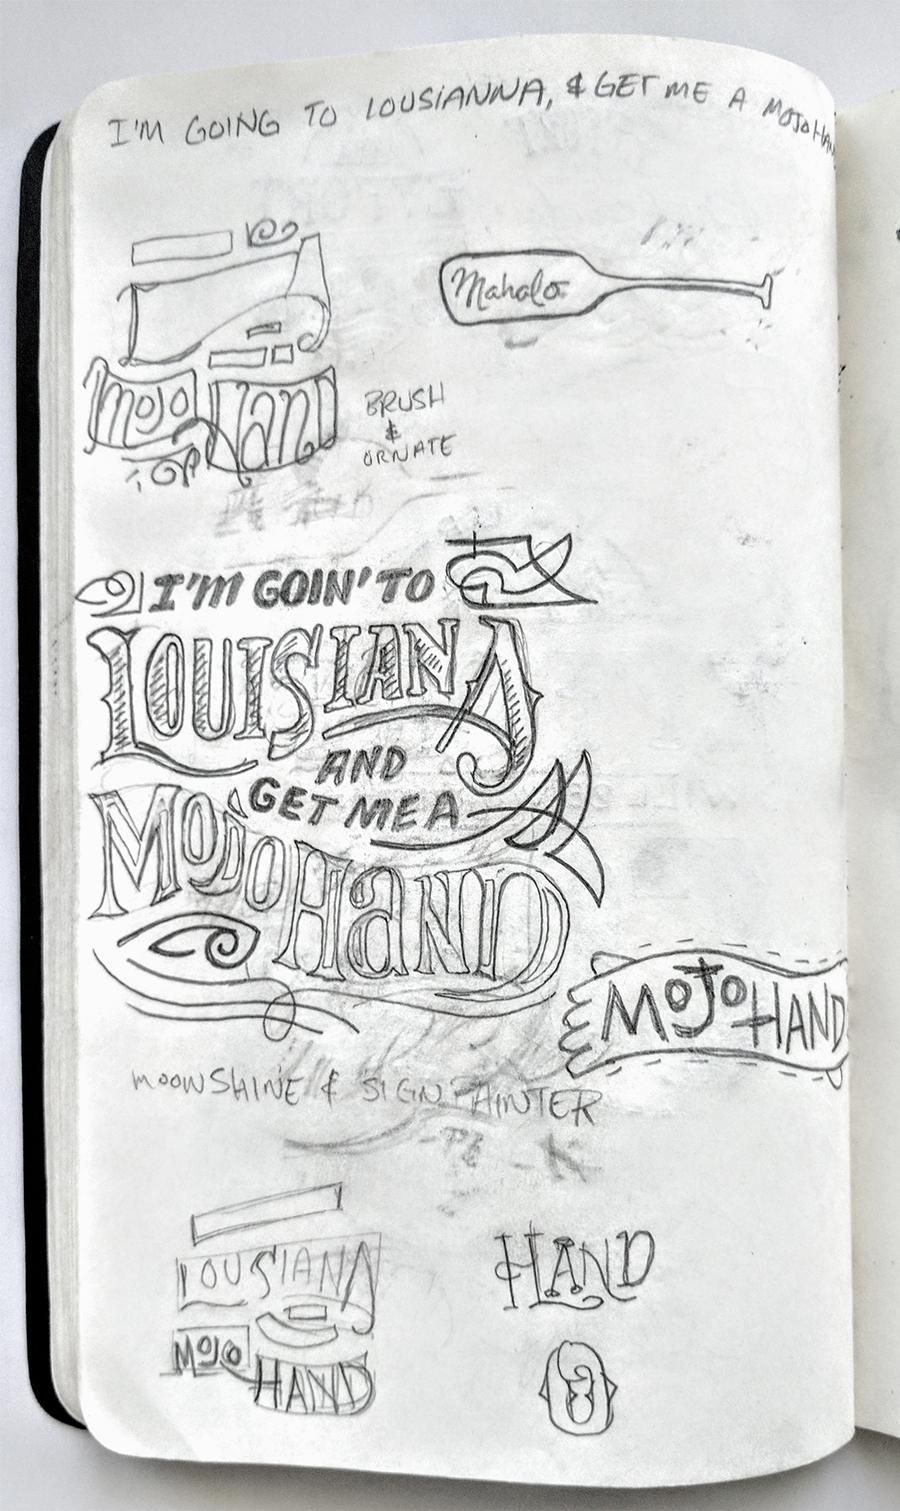 I'M GOING TO LOUSIANNA, & GET ME A MOJO HAN
Mahalo
MOJO HAND
BRUSH
&
ORNATE
I'M GOIN' TO
LOUISIANA
AND
GET ME A
MOJO HAND
MOJO HAND
MOONSHINE & SIGN PAINTER
LOUSIANN
MOJO
HAND
HAND